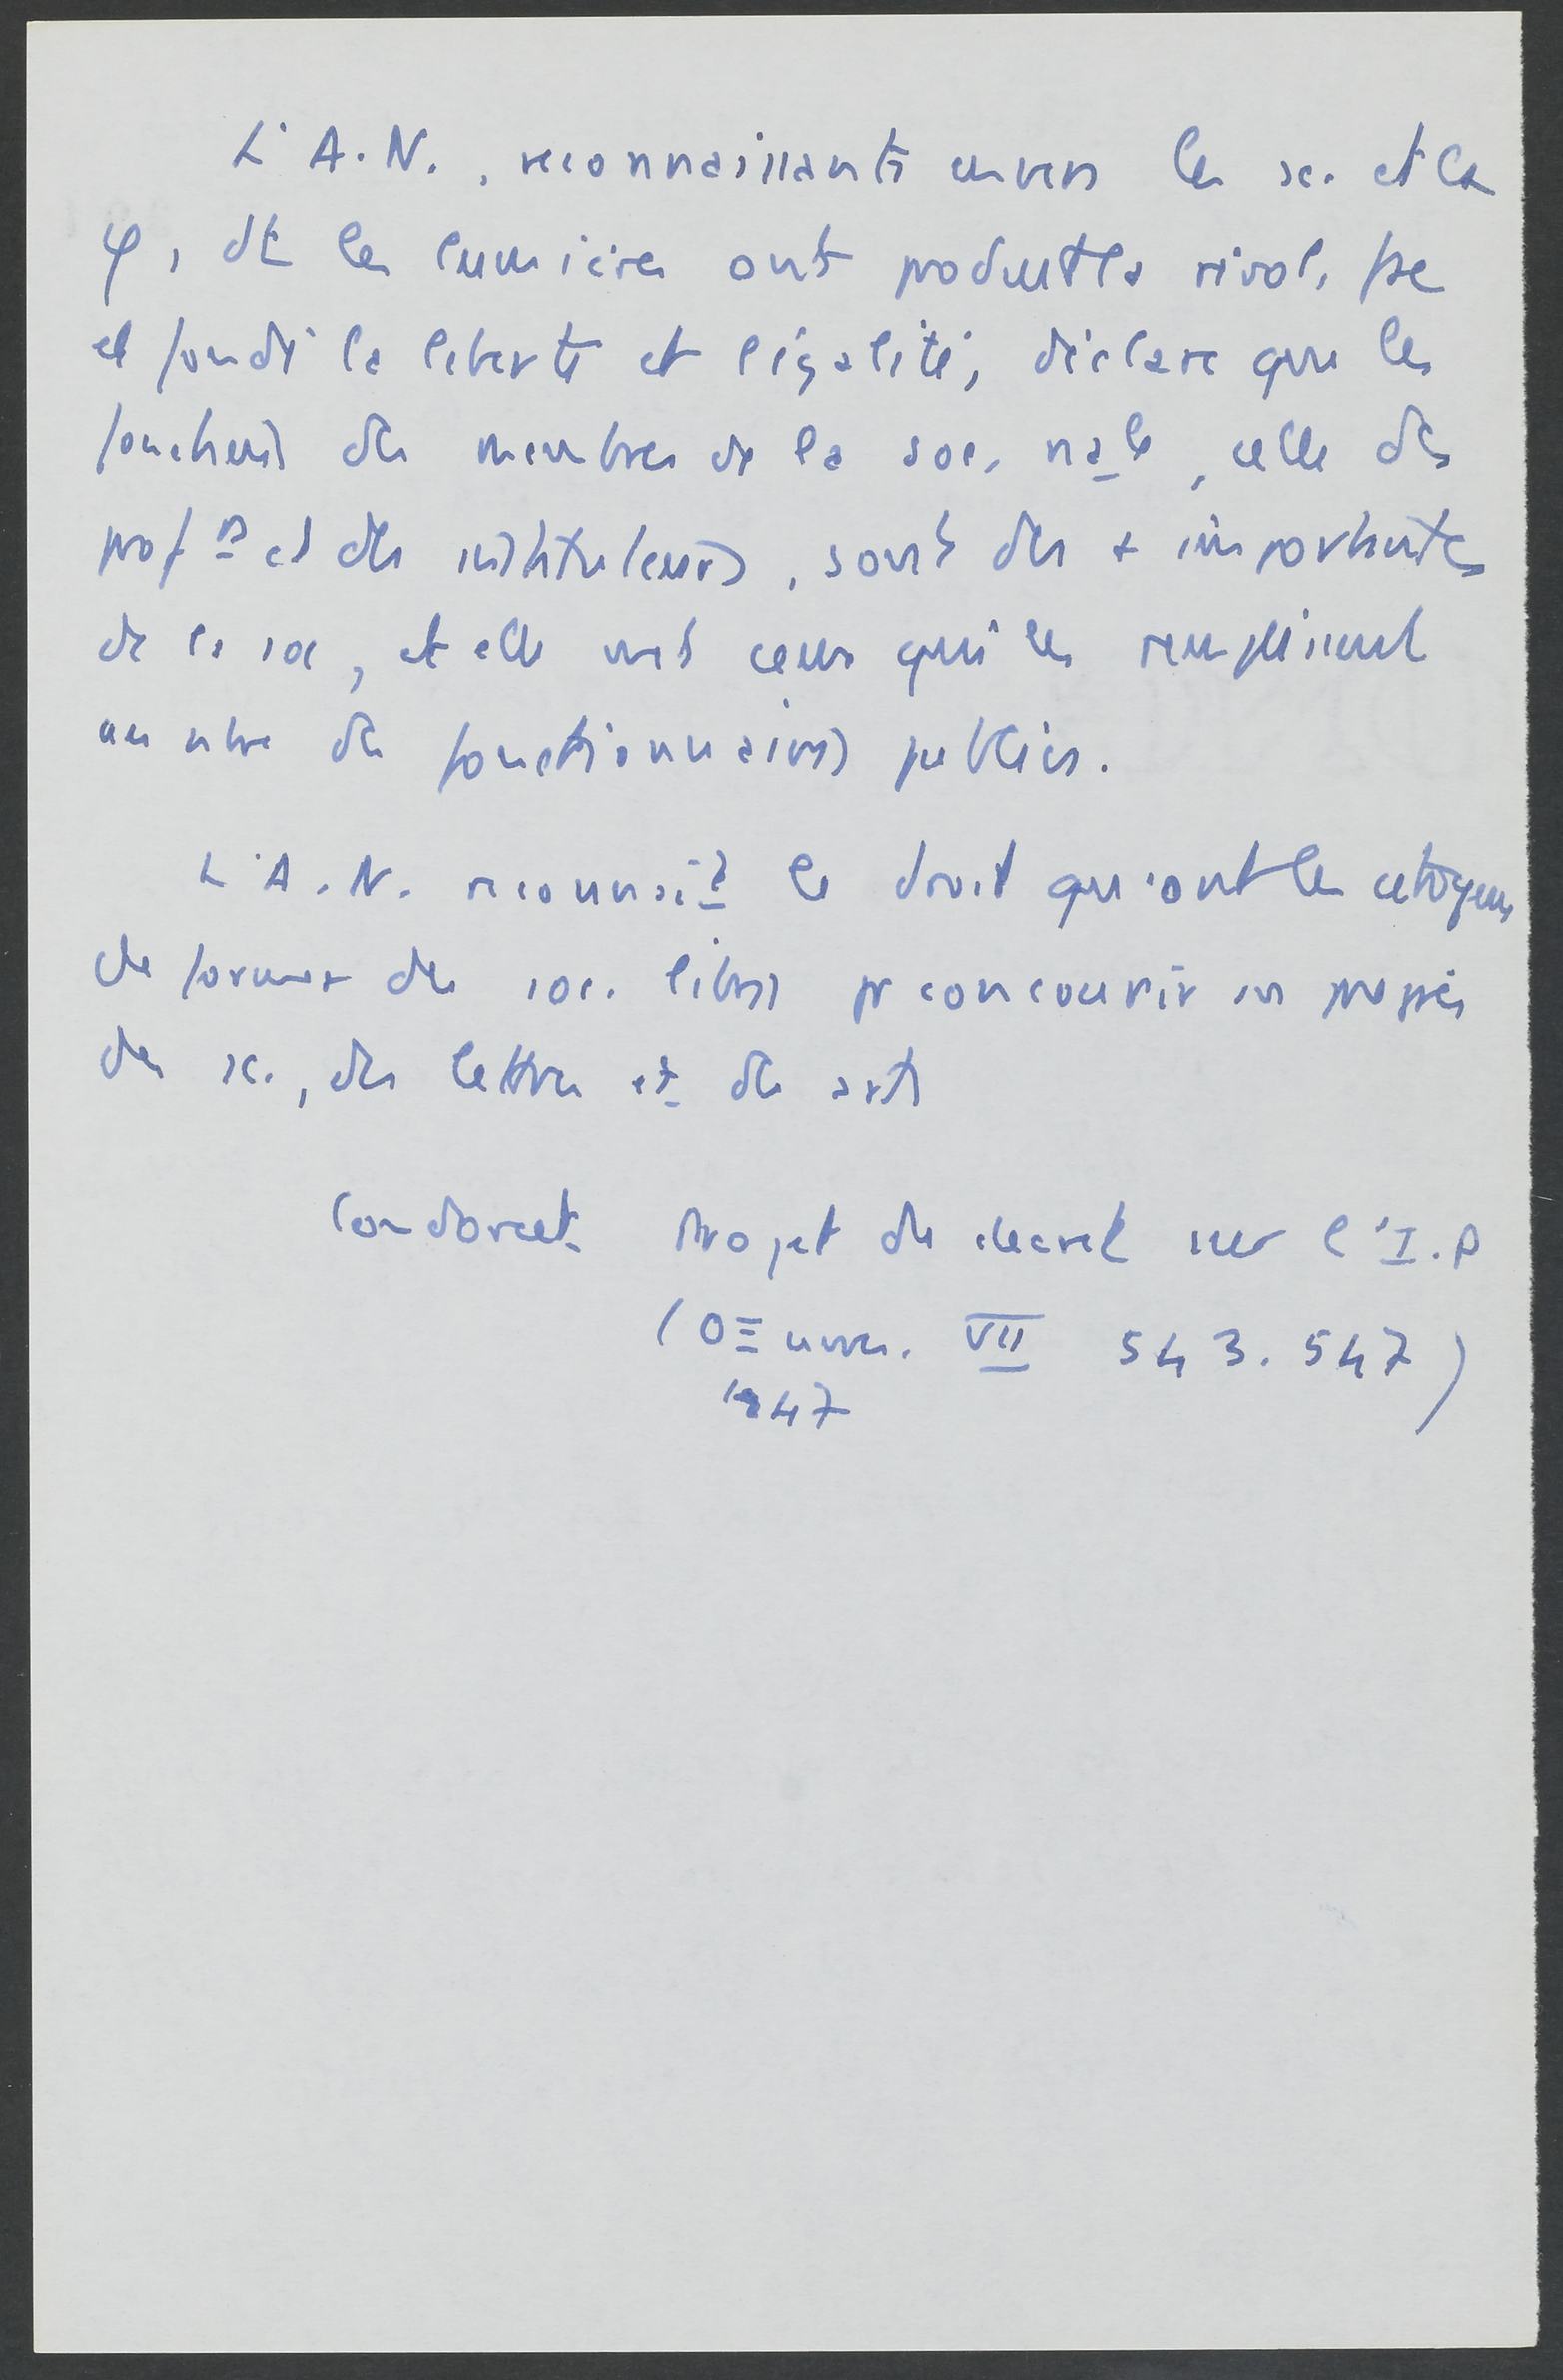 L'A.N., reconnaissante envers les sc. et la
φ, dt les lumières ont produit la révol. fse
et fondé la liberté et l'égalité, déclare que les
fonctions des membres de la soc. nale, celle des
profrs et des instituteurs, sont des + importantes
de la soc, et elle met ceux qui les remplissent
au nbre des fonctionnaires publics.
L'A.N. reconnaît le droit qu'ont les citoyens
de former des soc. libres pr concourir au progrès
des sc., des lettres et des arts
Condorcet. Projet de décret sur l'I.P
(OEuvres. VII 543.547)
1847